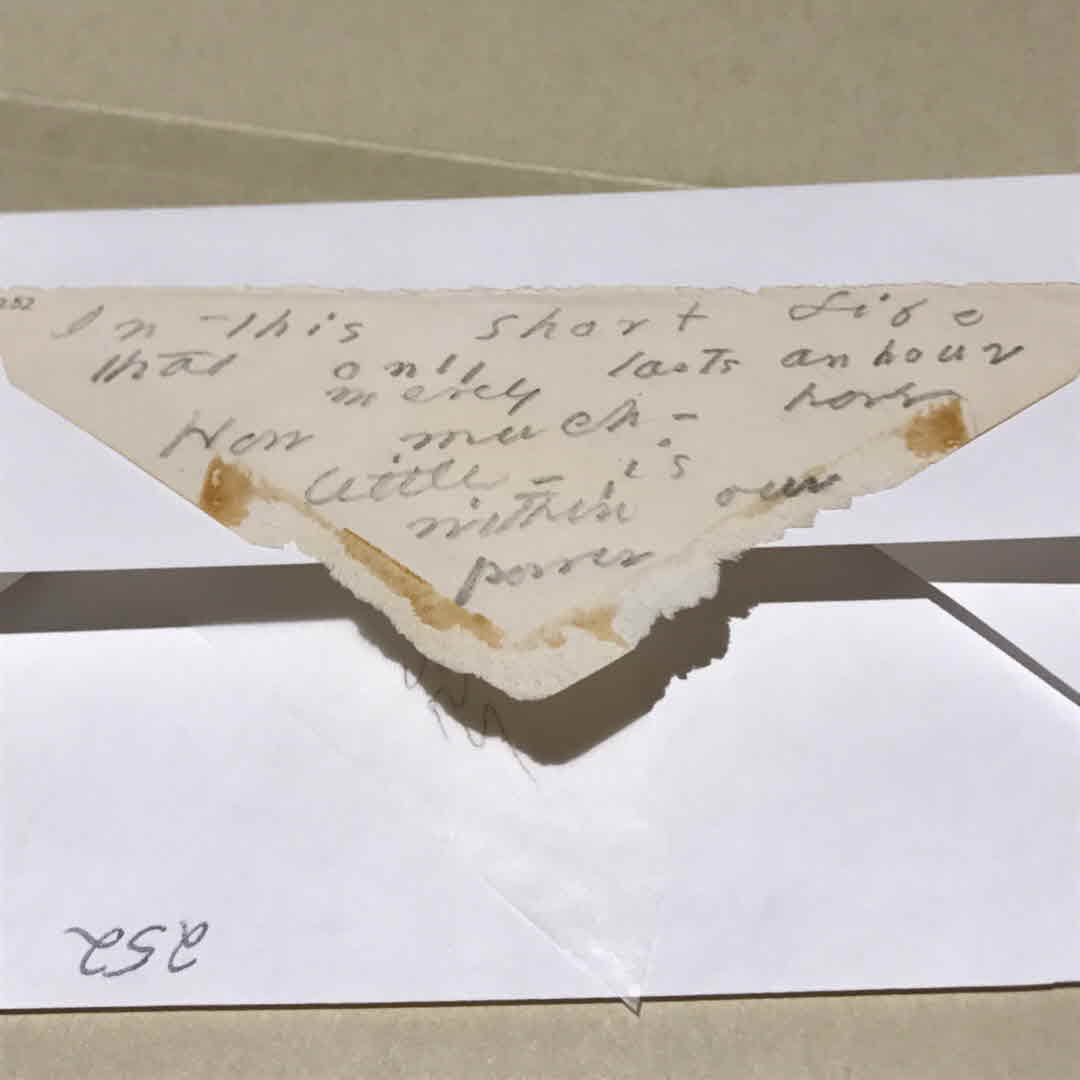 252
In this short Life
that only lasts an hour
merely
How much - how
little - is
within our
power
252